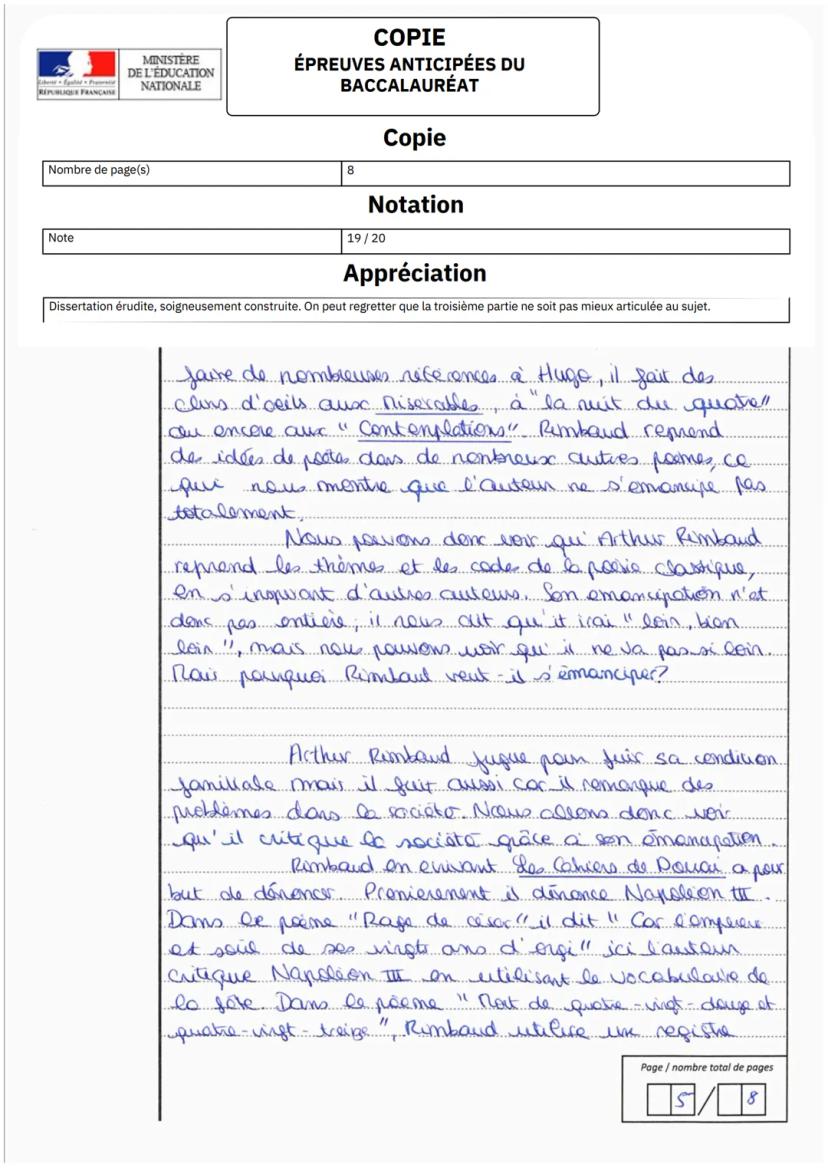 COPIE
ÉPREUVES ANTICIPÉES DU
BACCALAURÉAT
Liberté • Égalité • Fraternité
RÉPUBLIQUE FRANÇAISE
MINISTÈRE
DE L'ÉDUCATION
NATIONALE
Copie
Nombre de page(s) 8
Notation
Note 19 / 20
Appréciation
Dissertation érudite, soigneusement construite. On peut regretter que la troisième partie ne soit pas mieux articulée au sujet.
faire de nombreuses références à Hugo, il fait des
clins d'oeils aux Misérables, à "la nuit du quatre"
ou encore aux "Contenplations". Rimbaud reprend
des idées de poètes dans de nombreux autres poèmes, ce
qui nous montre que l'auteur ne s'émancipe pas
totalement.
Nous pouvons donc voir qu'Arthur Rimbaud
reprend les thèmes et les codes de la poésie classique,
en s'inspirant d'autres auteurs. Son émancipation n'et
donc pas entière; il nous dit qu'il irai "loin, bien
loin", mais nous pouvons voir qu'il ne va pas si loin.
Mais pourquoi Rimbaud veut-il s'émanciper?
Arthur Rimbaud fugue pour fuir sa condition
familiale mais il fuit aussi car il remarque des
problèmes dans la société. Nous allons donc voir
qu'il critique la société grâce à son émancipation.
Rimbaud en écrivant Les Cahiers de Douai a pour
but de dénoncer. Premierement il dénonce Napoléon III.
Dans le poème "Rage de césar" il dit "Car l'empereur
et soûl de ses vingts ans d'orgi" ici l'auteur
critique Napoléon III en utilisant le vocabulaire de
la fête. Dans le poème "Mort de quatre-vingt-douze et
quatre-vingt-treize", Rimbaud utilise un registre
Page / nombre total de pages
5 / 8